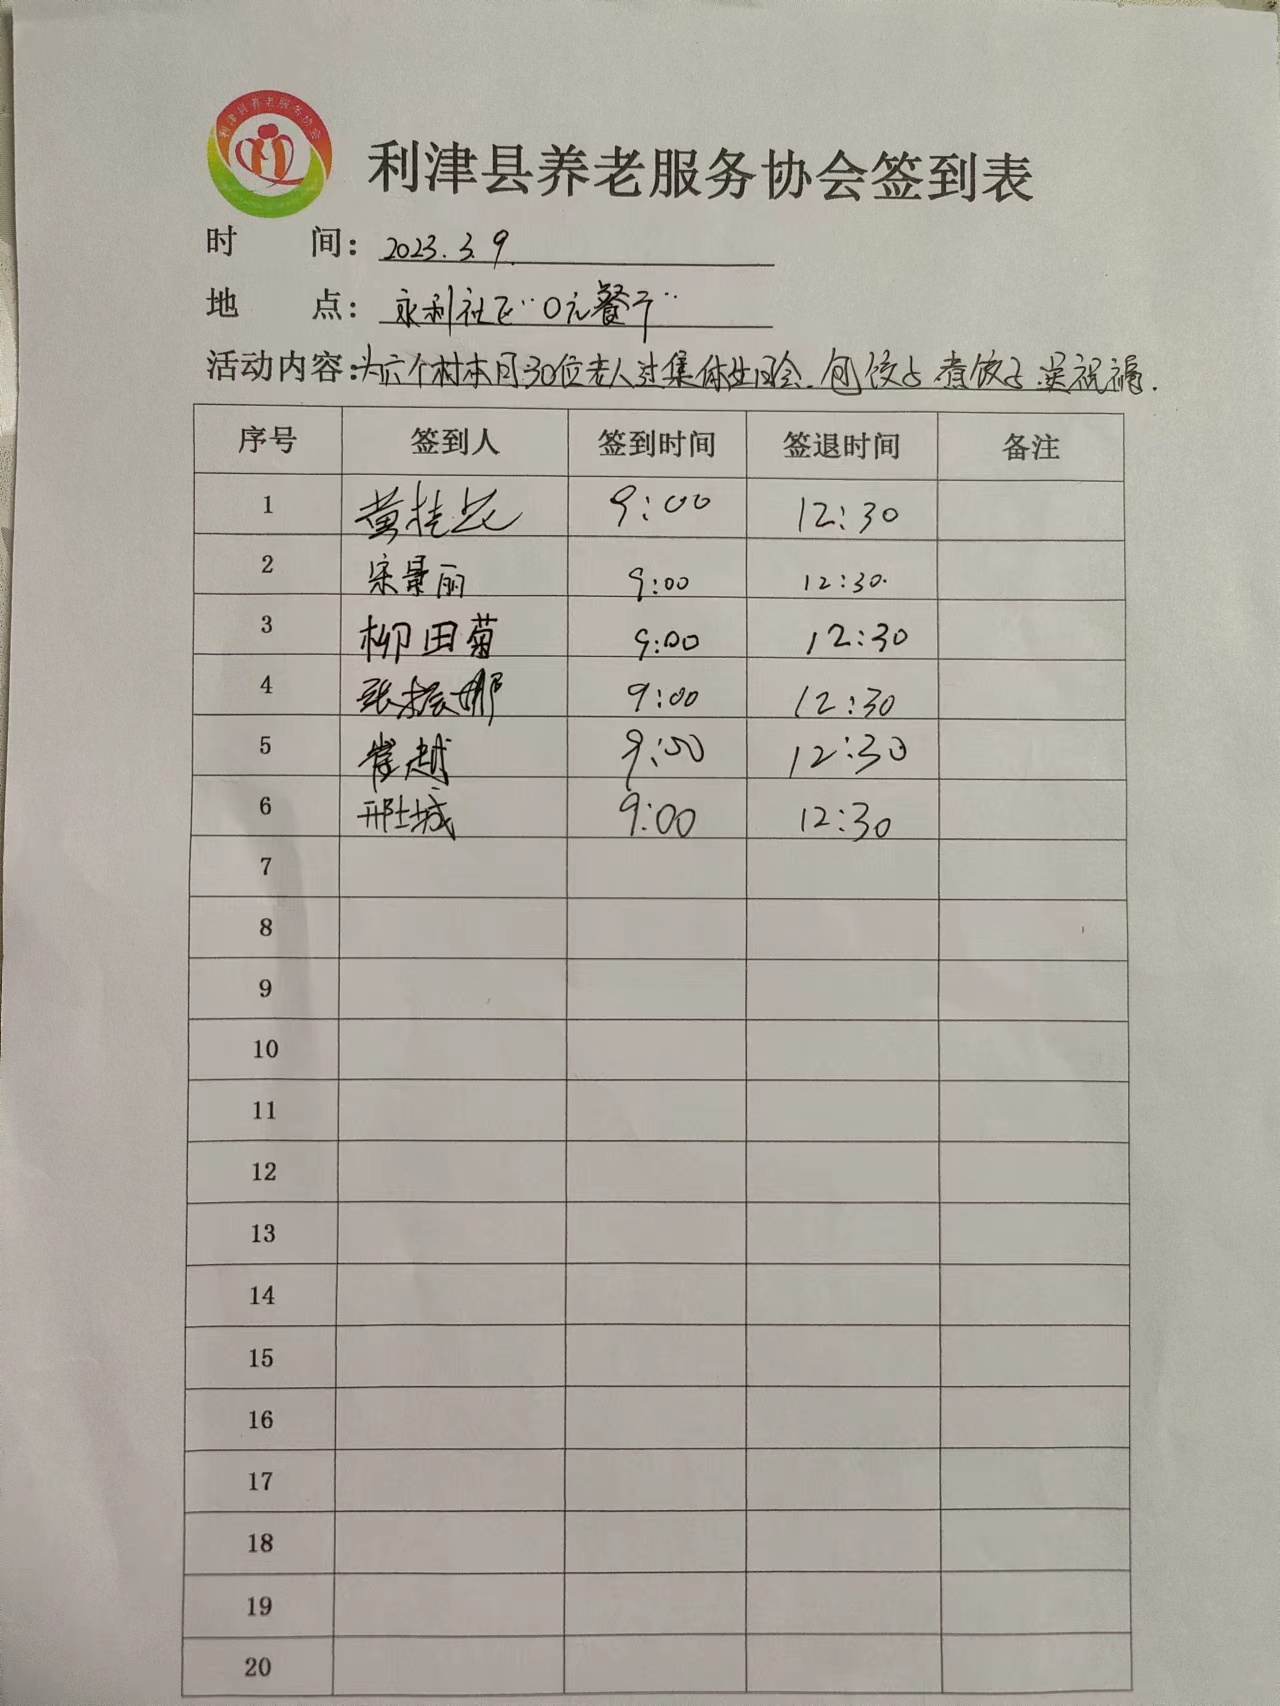 利津县养老服务协会
利津县养老服务协会签到表
时 间: 2023.3.9
地 点: 永利社区“0元餐厅”
活动内容:为六个村本月30位老人过集体生日会.包饺子煮饺子.送祝福.
序号 签到人 签到时间 签退时间 备注
1 黄桂花 9:00 12:30
2 宋景丽 9:00 12:30.
3 柳田菊 9:00 12:30
4 张振娜 9:00 12:30
5 崔越 9:00 12:30
6 邢城 9:00 12:30
7
8
9
10
11
12
13
14
15
16
17
18
19
20